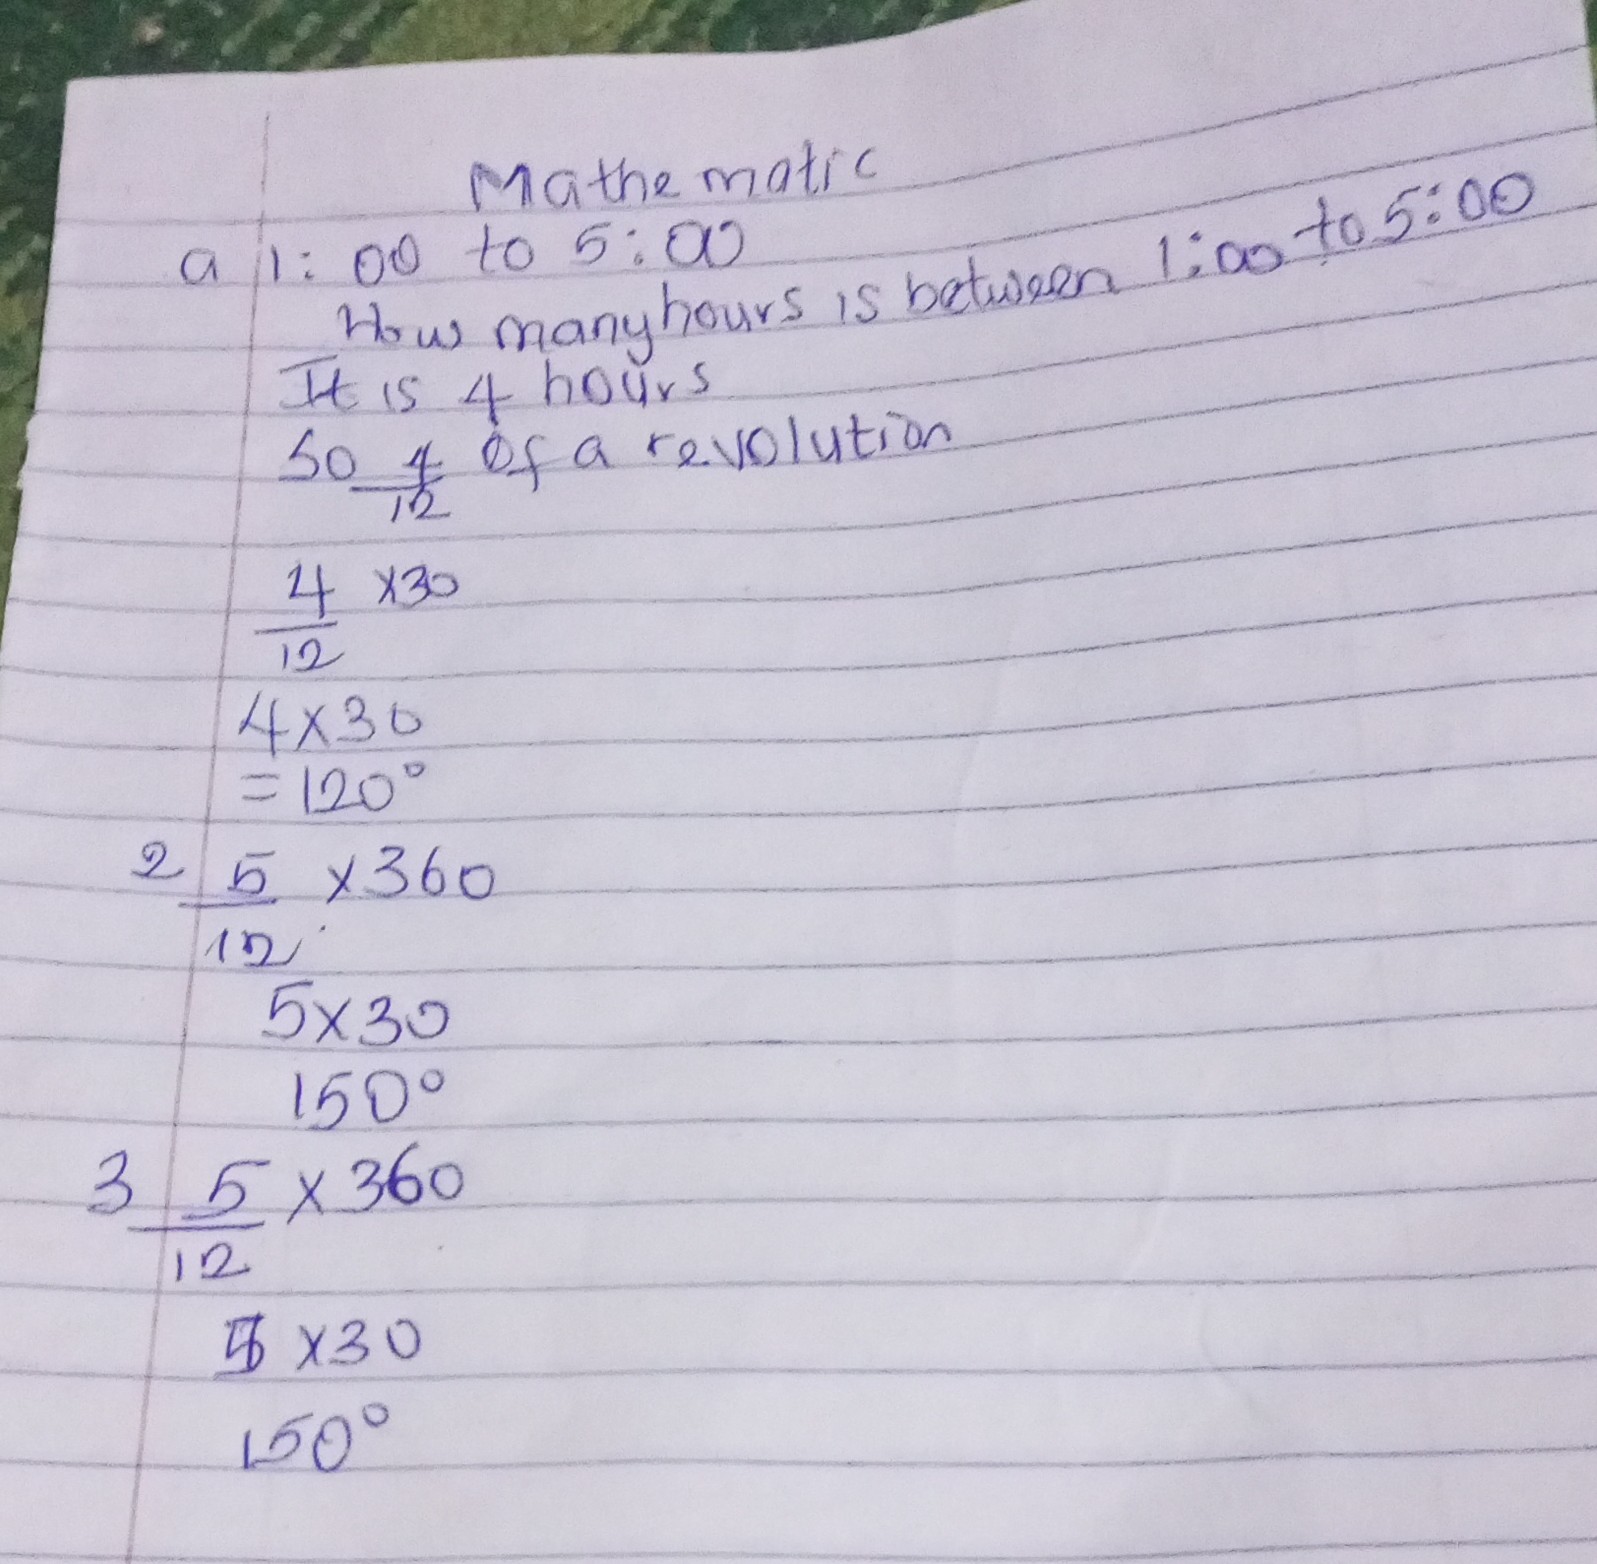 Mathematic
a 1:00 to 5:00
How many hours is between 1:00 to 5:00
It is 4 hours
So 4/12 of a revolution
4/12 x30
4x30
=120°
2 5/12 x360
5x30
150°
3 5/12 x360
5 x30
150°